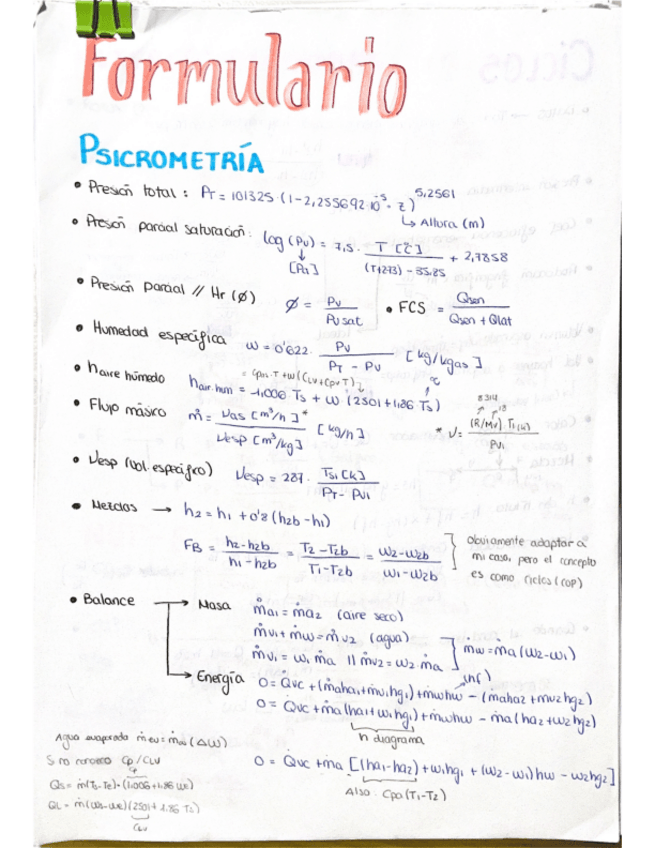 Formulario
PSICROMETRÍA
• Presión total: PT = 101325·(1-2,255692·10⁻⁵·z)^5,2561
↳ Altura (m)
• Presión parcial saturación: log (Pv) = 7,5 · T [°C] / ((T+273) - 35,85) + 2,7858
↓
[Pa]
• Presión parcial // Hr (Ø) Ø = Pv / Pvsat • FCS = Qsen / (Qsen + Qlat)
• Humedad específica ω = 0'622 · Pv / (PT - Pv) [kg/kgas]
• haire húmedo = Cpa·T+ω(CLV+Cpv T)
hair hum = 1,006 Ts + ω (2501+1,86 Ts)
• Flujo másico ṁ = Vas [m³/h]* / Vesp [m³/kg] [kg/h] * V = (R/Mv)·Ts(k) / Pv1
8314 18
• Vesp (Vol. específico) Vesp = 287 · Ts1 [k] / (PT - Pv1)
• Mezclas → h2 = h1 + 0'8 (h2b - h1)
FB = (h2-h2b)/(h1-h2b) = (T2-T2b)/(T1-T2b) = (ω2-ω2b)/(ω1-ω2b)
Obviamente adaptar a
mi caso, pero el concepto
es como ciclos (COP)
• Balance → Masa ṁa1 = ṁa2 (aire seco)
ṁv1 + ṁw = ṁv2 (agua)
ṁv1 = ω1 ṁa // ṁv2 = ω2·ṁa
mw = ma (ω2-ω1)
→ Energía 0 = Q̇vc + (ṁaha1+ṁv1hg1)+ṁwhw - (ṁaha2+ṁv2hg2)
0 = Q̇vc + ṁa (ha1+ω1hg1)+ṁwhw - ṁa (ha2+ω2hg2)
h diagrama
0 = Q̇vc + ṁa [(ha1-ha2) + ω1hg1 + (ω2-ω1) hw - ω2hg2]
Also: Cpa (T1-T2)
Agua evaporada ṁev = ṁas (Δω)
Si no conozco Cp/CLV
Cp
Qs = ṁ(Ts-Te)·(1,006+1,86 ωe)
QL = ṁ(ωs-ωe)(2501+1.86 Ts)
CLV